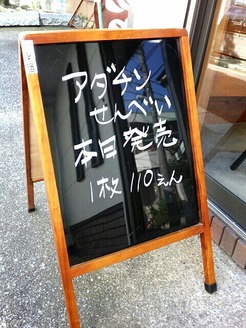 アダチン
せんべい
本日発売
1枚 110えん